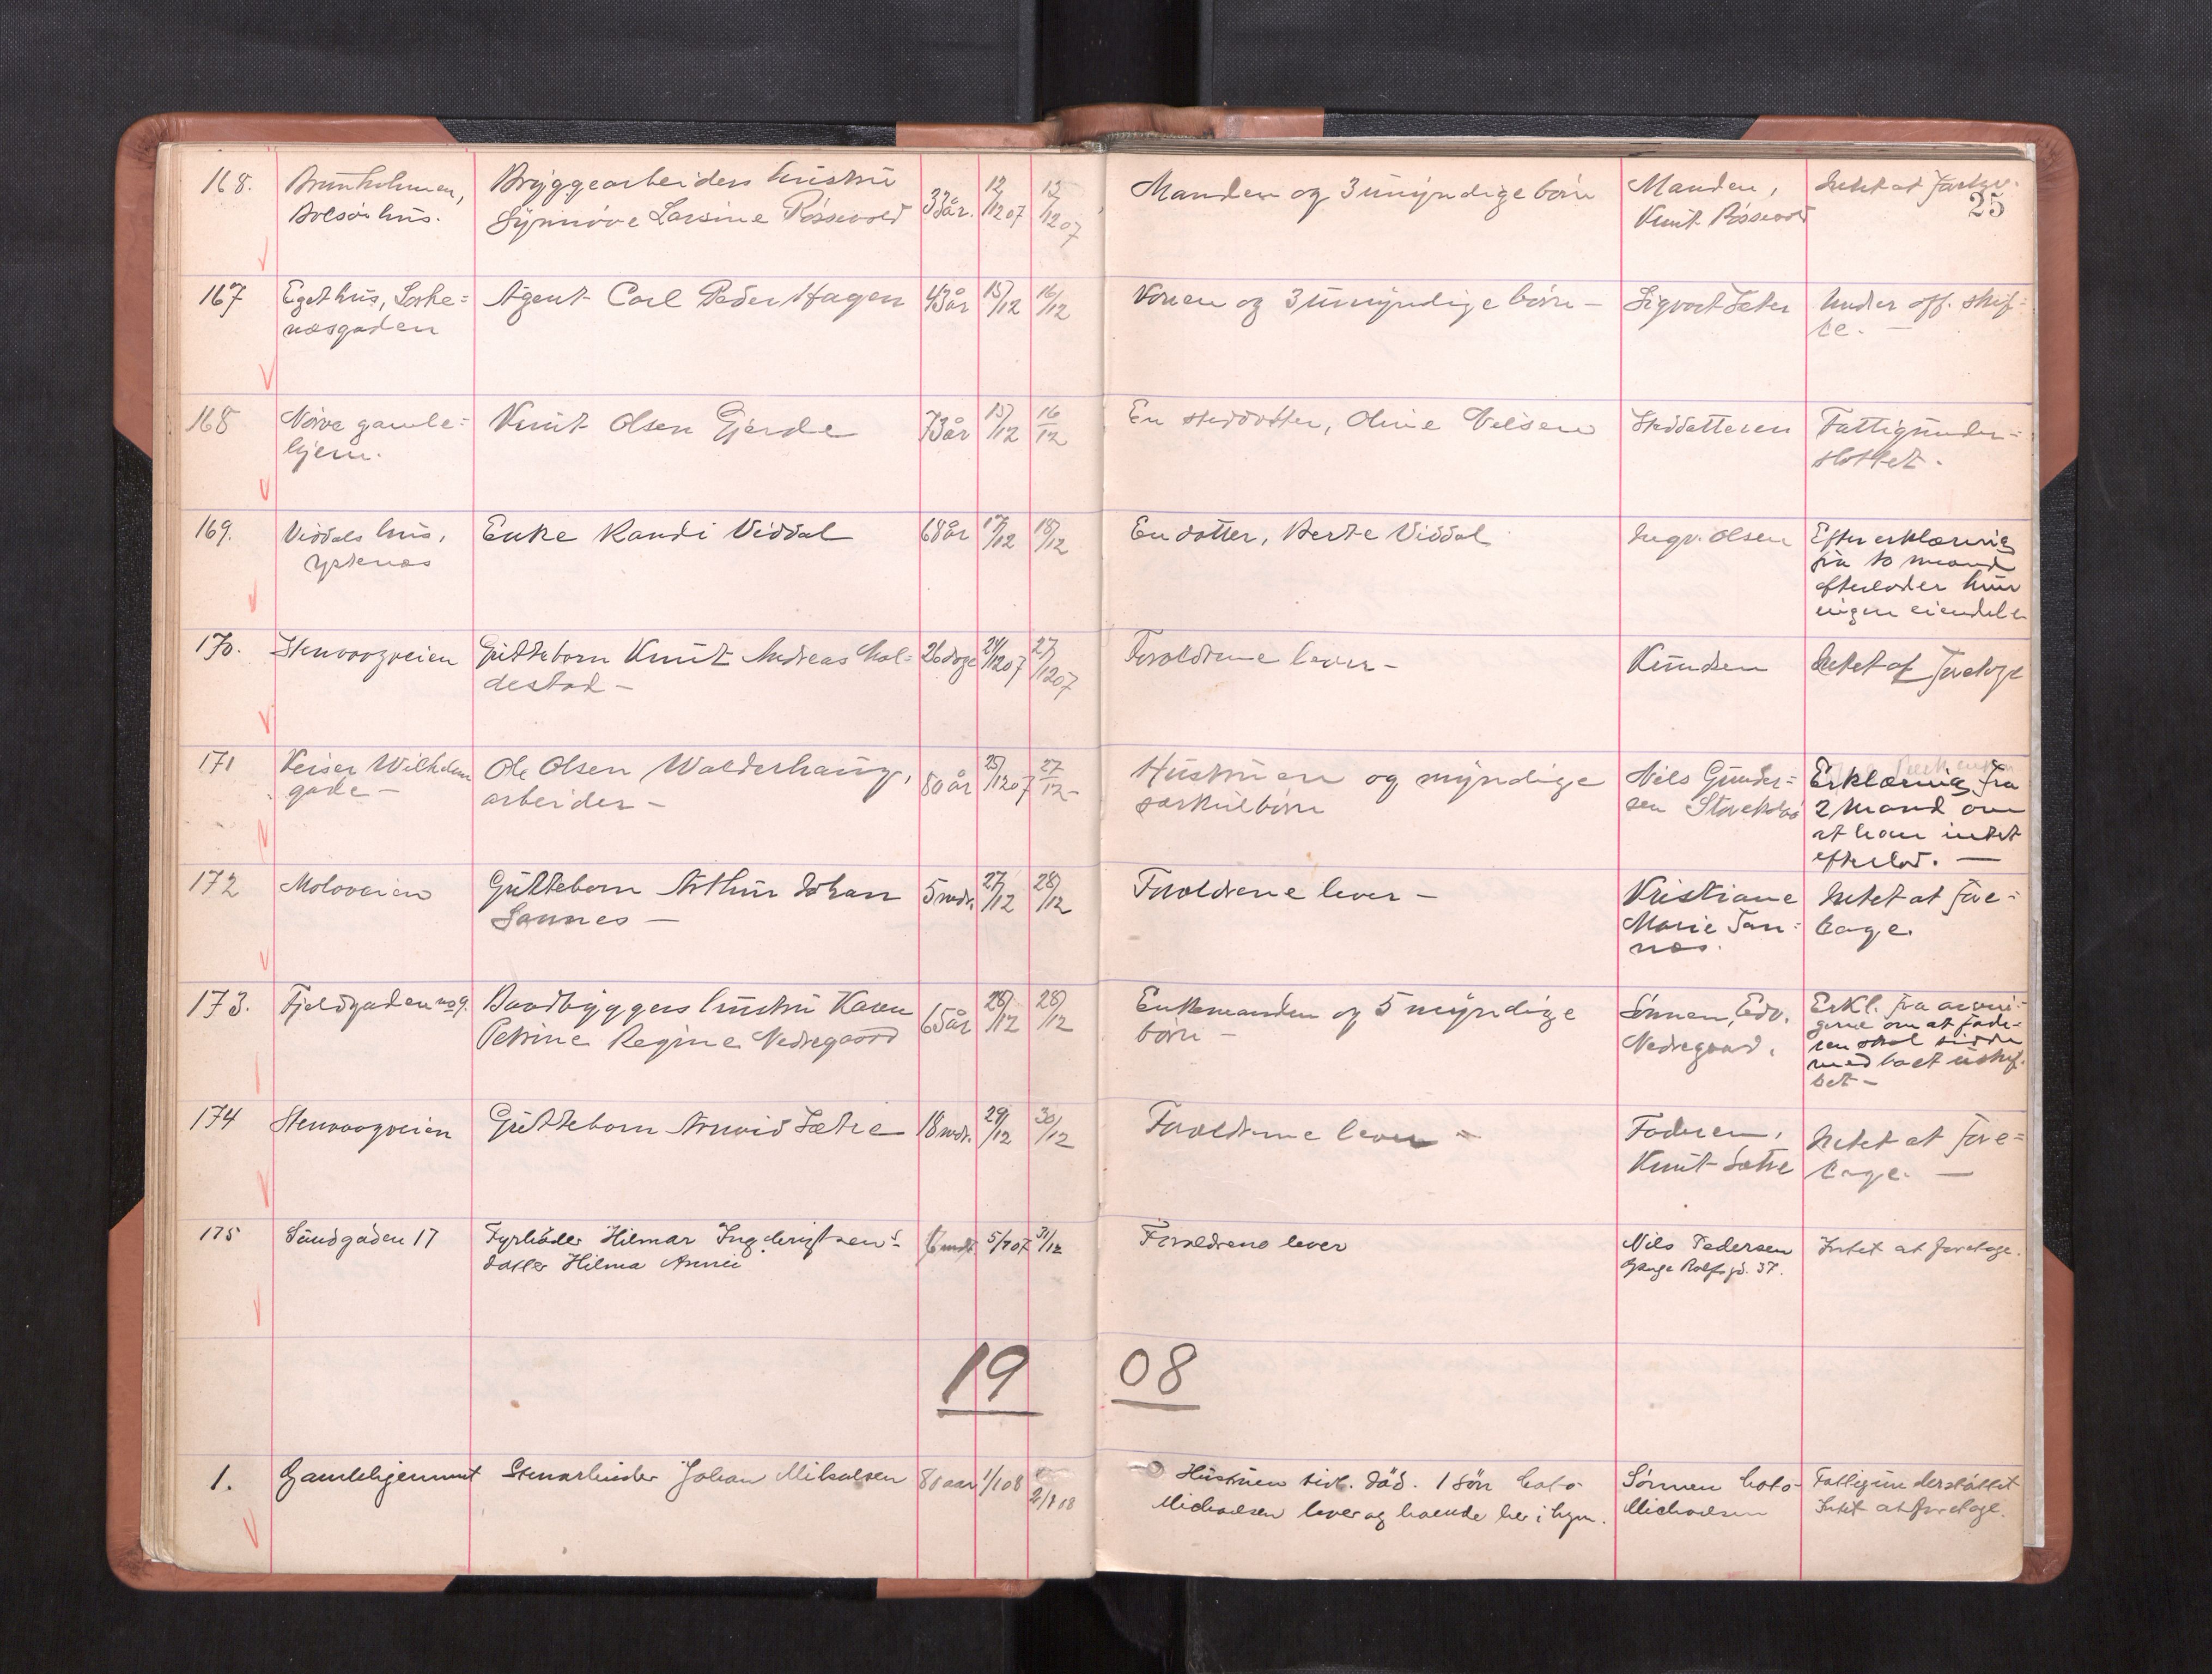 25
168. Brunholmen, Bryggearbeiders hustru 33 år. 12/12 07 12/12 07 Manden og 3 umyndige børn Manden, Intet at
hus. Synnøve Larsine Røssevold Knut Røssevold
167 Eget hus, Agent Carl Peder Hagen 43 år 15/12 16/12 Konen og 3 umyndige børn - Sigvart Sæter Under off. skif-
næsgaden te. -
168 Nørve gamle- Knut Olsen Gjerde 73 år 15/12 16/12 En steddotter, Oline Nelsen Steddatteren Fattigunder-
hjem. støttet.
169. Viddals hus, Enke Randi Viddal 68 år 17/12 18/12 En dotter, Berte Viddal Ingv. Olsen Efter erklæring
Ystenæs fra to mænd
efterlader hun
ingen eiendele
170. Stenvaagveien Guttebarn Knut Andreas Mol- 26 dage 24/12 07 27/12 07 Forældrene lever - Knudsen Intet at foretage
destad -
171 Keiser Wilhelms Ole Olsen Walderhaug, 80 år 25/12 07 27/12 - Hustruen og myndige Nils Gunder- Erklæring fra
gade - arbeider - særkulbørn sen 2 mænd om
at han intet
efterlod. -
172 Moloveien Guttebarn Arthur Johan 5 mdr. 27/12 28/12 Forældrene lever - Kristiane Intet at fore-
Sannes - Marie San- tage.
næs.
173. Fjeldgaden no 9. Baadbyggers hustru Karen 65 år 28/12 28/12 Enkemanden og 5 myndige Sønnen, Edv. Erkl. fra arvin-
Petrine Regine Nedregaard børn - Nedregaard. gerne om at fade-
ren skal sidde
med boet uskif-
tet -
174 Stenvaagveien Guttebarn Arnvid Sætre 18 mdr. 29/12 30/12 Forældrene lever - Faderen, Intet at fore-
Knut Sætre tage. -
175 Sundgaden 17 Fyrbøder Hilmar Ingebrigtsens 6 mdr 31/12 Forældrene lever Nils Pedersen Intet at foretage.
datter Hilma Gange Rolfs gd. 37.
19 08
1. Gamlehjemmet Stenarbeider Johan Mikalsen 80 aar 1/1 08 2/1 08 Hustruen tidl. død. 1 søn Sønnen Fattigunderstøttet
Michaelsen lever og boende her i byen. Michaelsen Intet at foretage.